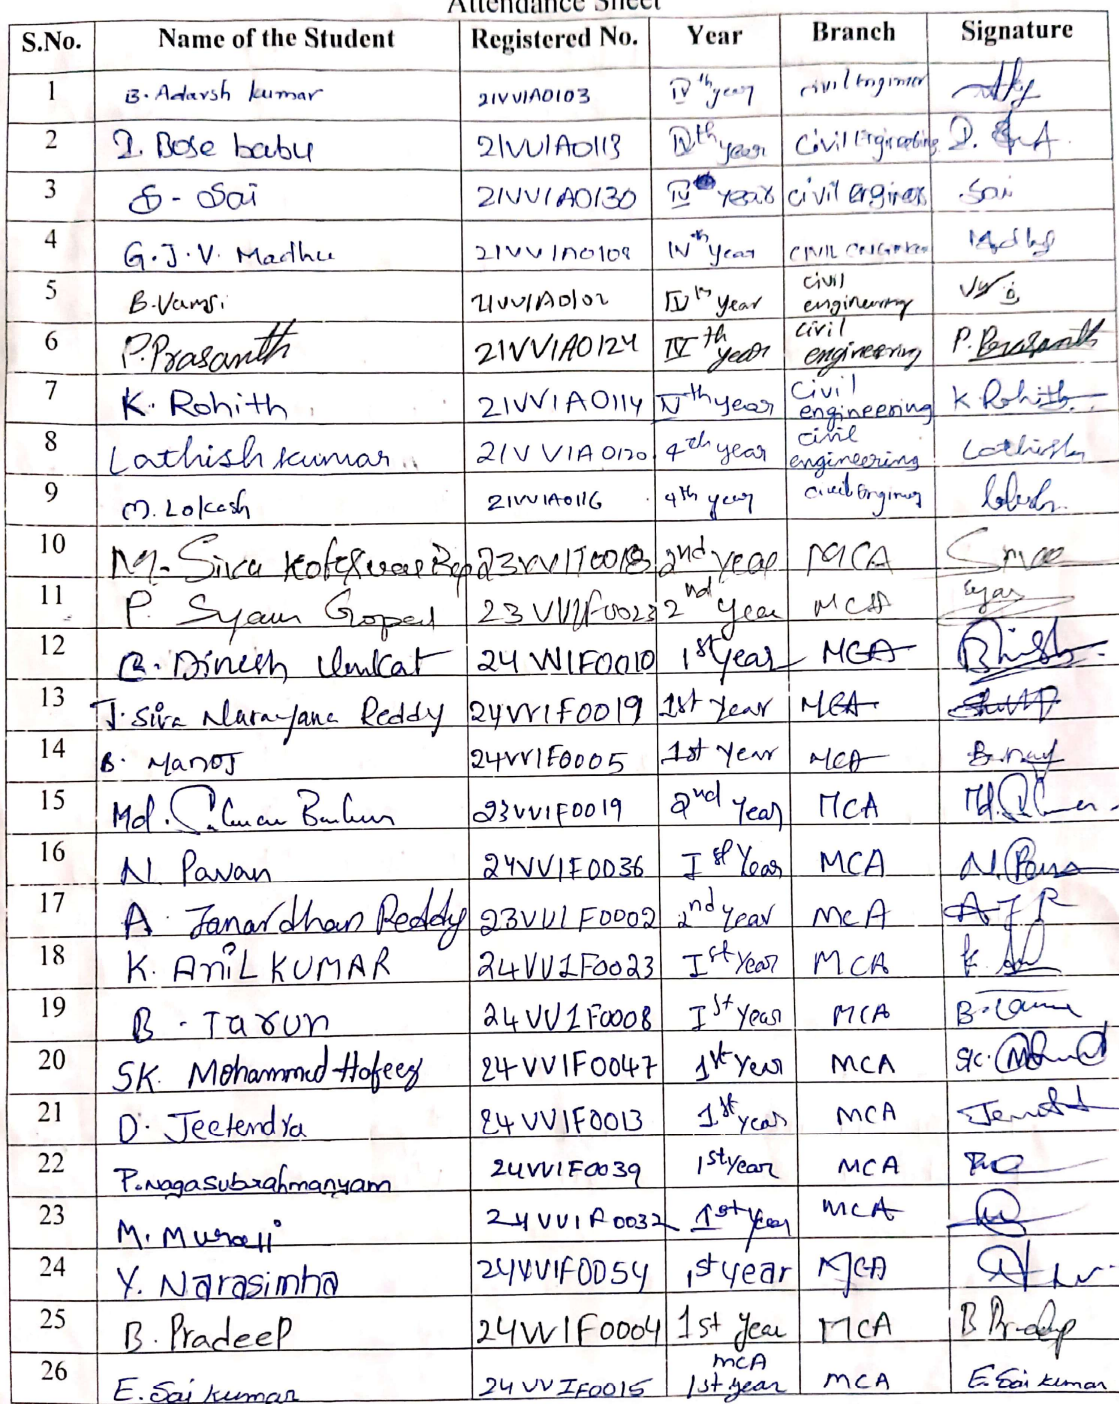 Attendance Sheet
S.No. Name of the Student Registered No. Year Branch Signature
1 B. Adarsh kumar 21VV1A0103 IVth year civil Engineer
2 D. Bose babu 21VV1A0113 IVth year Civil Engineering D.
3 S - Sai 21VV1A0130 IV year civil engineer Sai
4 G.J.V. Madhu 21VV1A0108 IVth year CIVIL ENGINEER Madhu
5 B.Vamsi 21VV1A0102 IVth year civil engineering
6 P.Prasanth 21VV1A0124 IVth year civil engineering P. Prasanth
7 K. Rohith 21VV1A0114 IVth year Civil engineering K Rohith
8 Lathish kumar 21VV1A0120 4th year civil engineering Lathish
9 M. Lokesh 21VV1A0116 4th year Civil Engineer
10 M. Siva 2nd year MCA Siva
11 P. Syam Gopal 23VV1F0023 2nd year MCA Syam
12 B. Dinesh Venkat 24VV1F0010 1st year MCA
13 J. Siva Narayana Reddy 24VV1F0019 1st Year MCA
14 B. Manoj 24VV1F0005 1st Year MCA
15 Md. 23VV1F0019 2nd Year MCA Md.
16 N. Pavan 24VV1F0036 Ist Year MCA N.
17 A. Janardhan Reddy 23VV1F0002 2nd year MCA AJR
18 K. ANIL KUMAR 24VV1F0023 Ist Year MCA K.
19 B. Tarun 24VV1F0008 Ist Year MCA B.
20 SK. Mohammed Hafeez 24VV1F0047 1st Year MCA SK.
21 D. Jeetendra 24VV1F0013 1st year MCA
22 P. Nagasubrahmanyam 24VV1F0039 1st year MCA
23 M. Murali 24VV1F0032 1st year MCA
24 Y. Narasimha 24VV1F0054 1st year MCA
25 B. Pradeep 24VV1F0004 1st year MCA B Pradeep
26 E. Sai kumar 24VV1F0015 MCA 1st year MCA E. Sai kumar